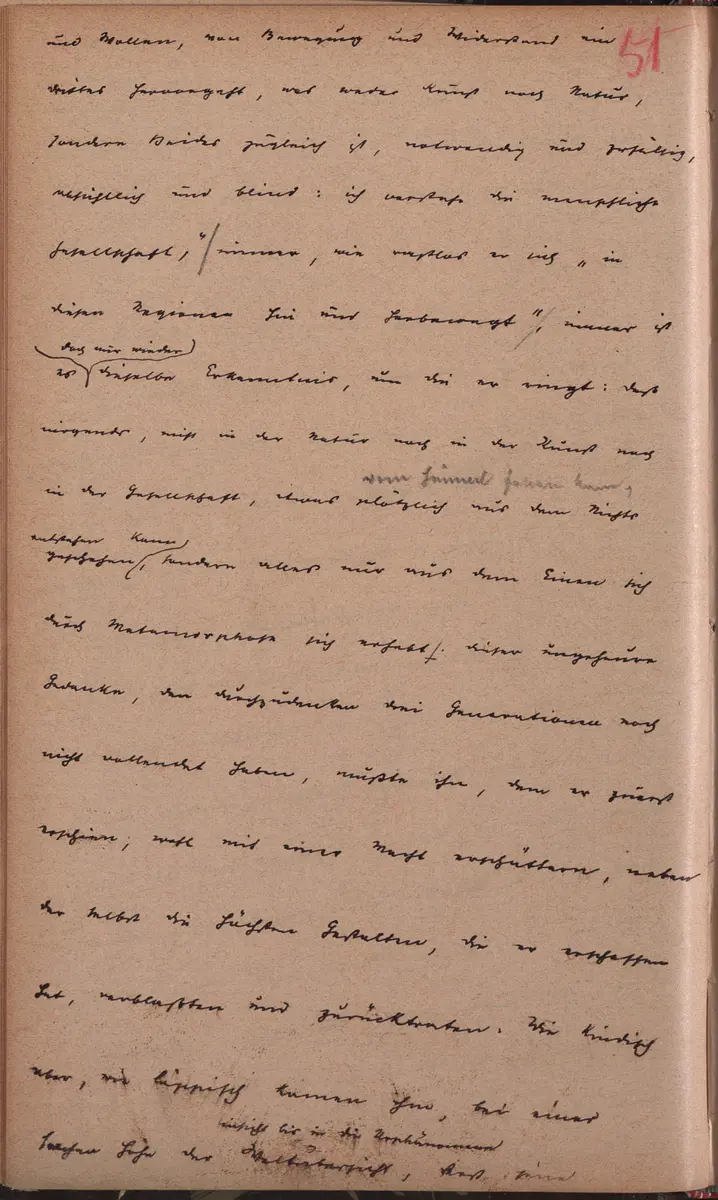 51
und Wollen, von Bewegung und Widerstand ein
drittes hervorgeht, was weder Kunst noch Natur,
sondern beides zugleich ist, notwendig und zufällig,
absichtlich und blind: ich verstehe die menschliche
Gesellschaft," immer, wie rastlos er sich „in
diesen Regionen hin und herbewegt", immer ist
doch nur wieder
es dieselbe Erkenntnis, um die er ringt: daß
nirgends, nicht in der Natur noch in der Kunst noch
vom Himmel fallen kann,
in der Gesellschaft, etwas plötzlich aus dem Nichts
entstehen kann,
geschehen, sondern alles nur aus dem Einen sich
durch Metamorphose sich erhebt. dieser ungeheure
Gedanke, den durchzudenken drei Generationen noch
nicht vollendet haben, mußte ihn, dem er zuerst
erschien, wohl mit einer Macht erschüttern, neben
der selbst die höchsten Gestalten, die er erschaffen
hat, verblaßten und zurücktraten. Wie kindisch
aber, wie läppisch kamen ihm, bei einer
einsicht bis in die Urphänomene
solchen Höhe der Weltübersicht, erst seine